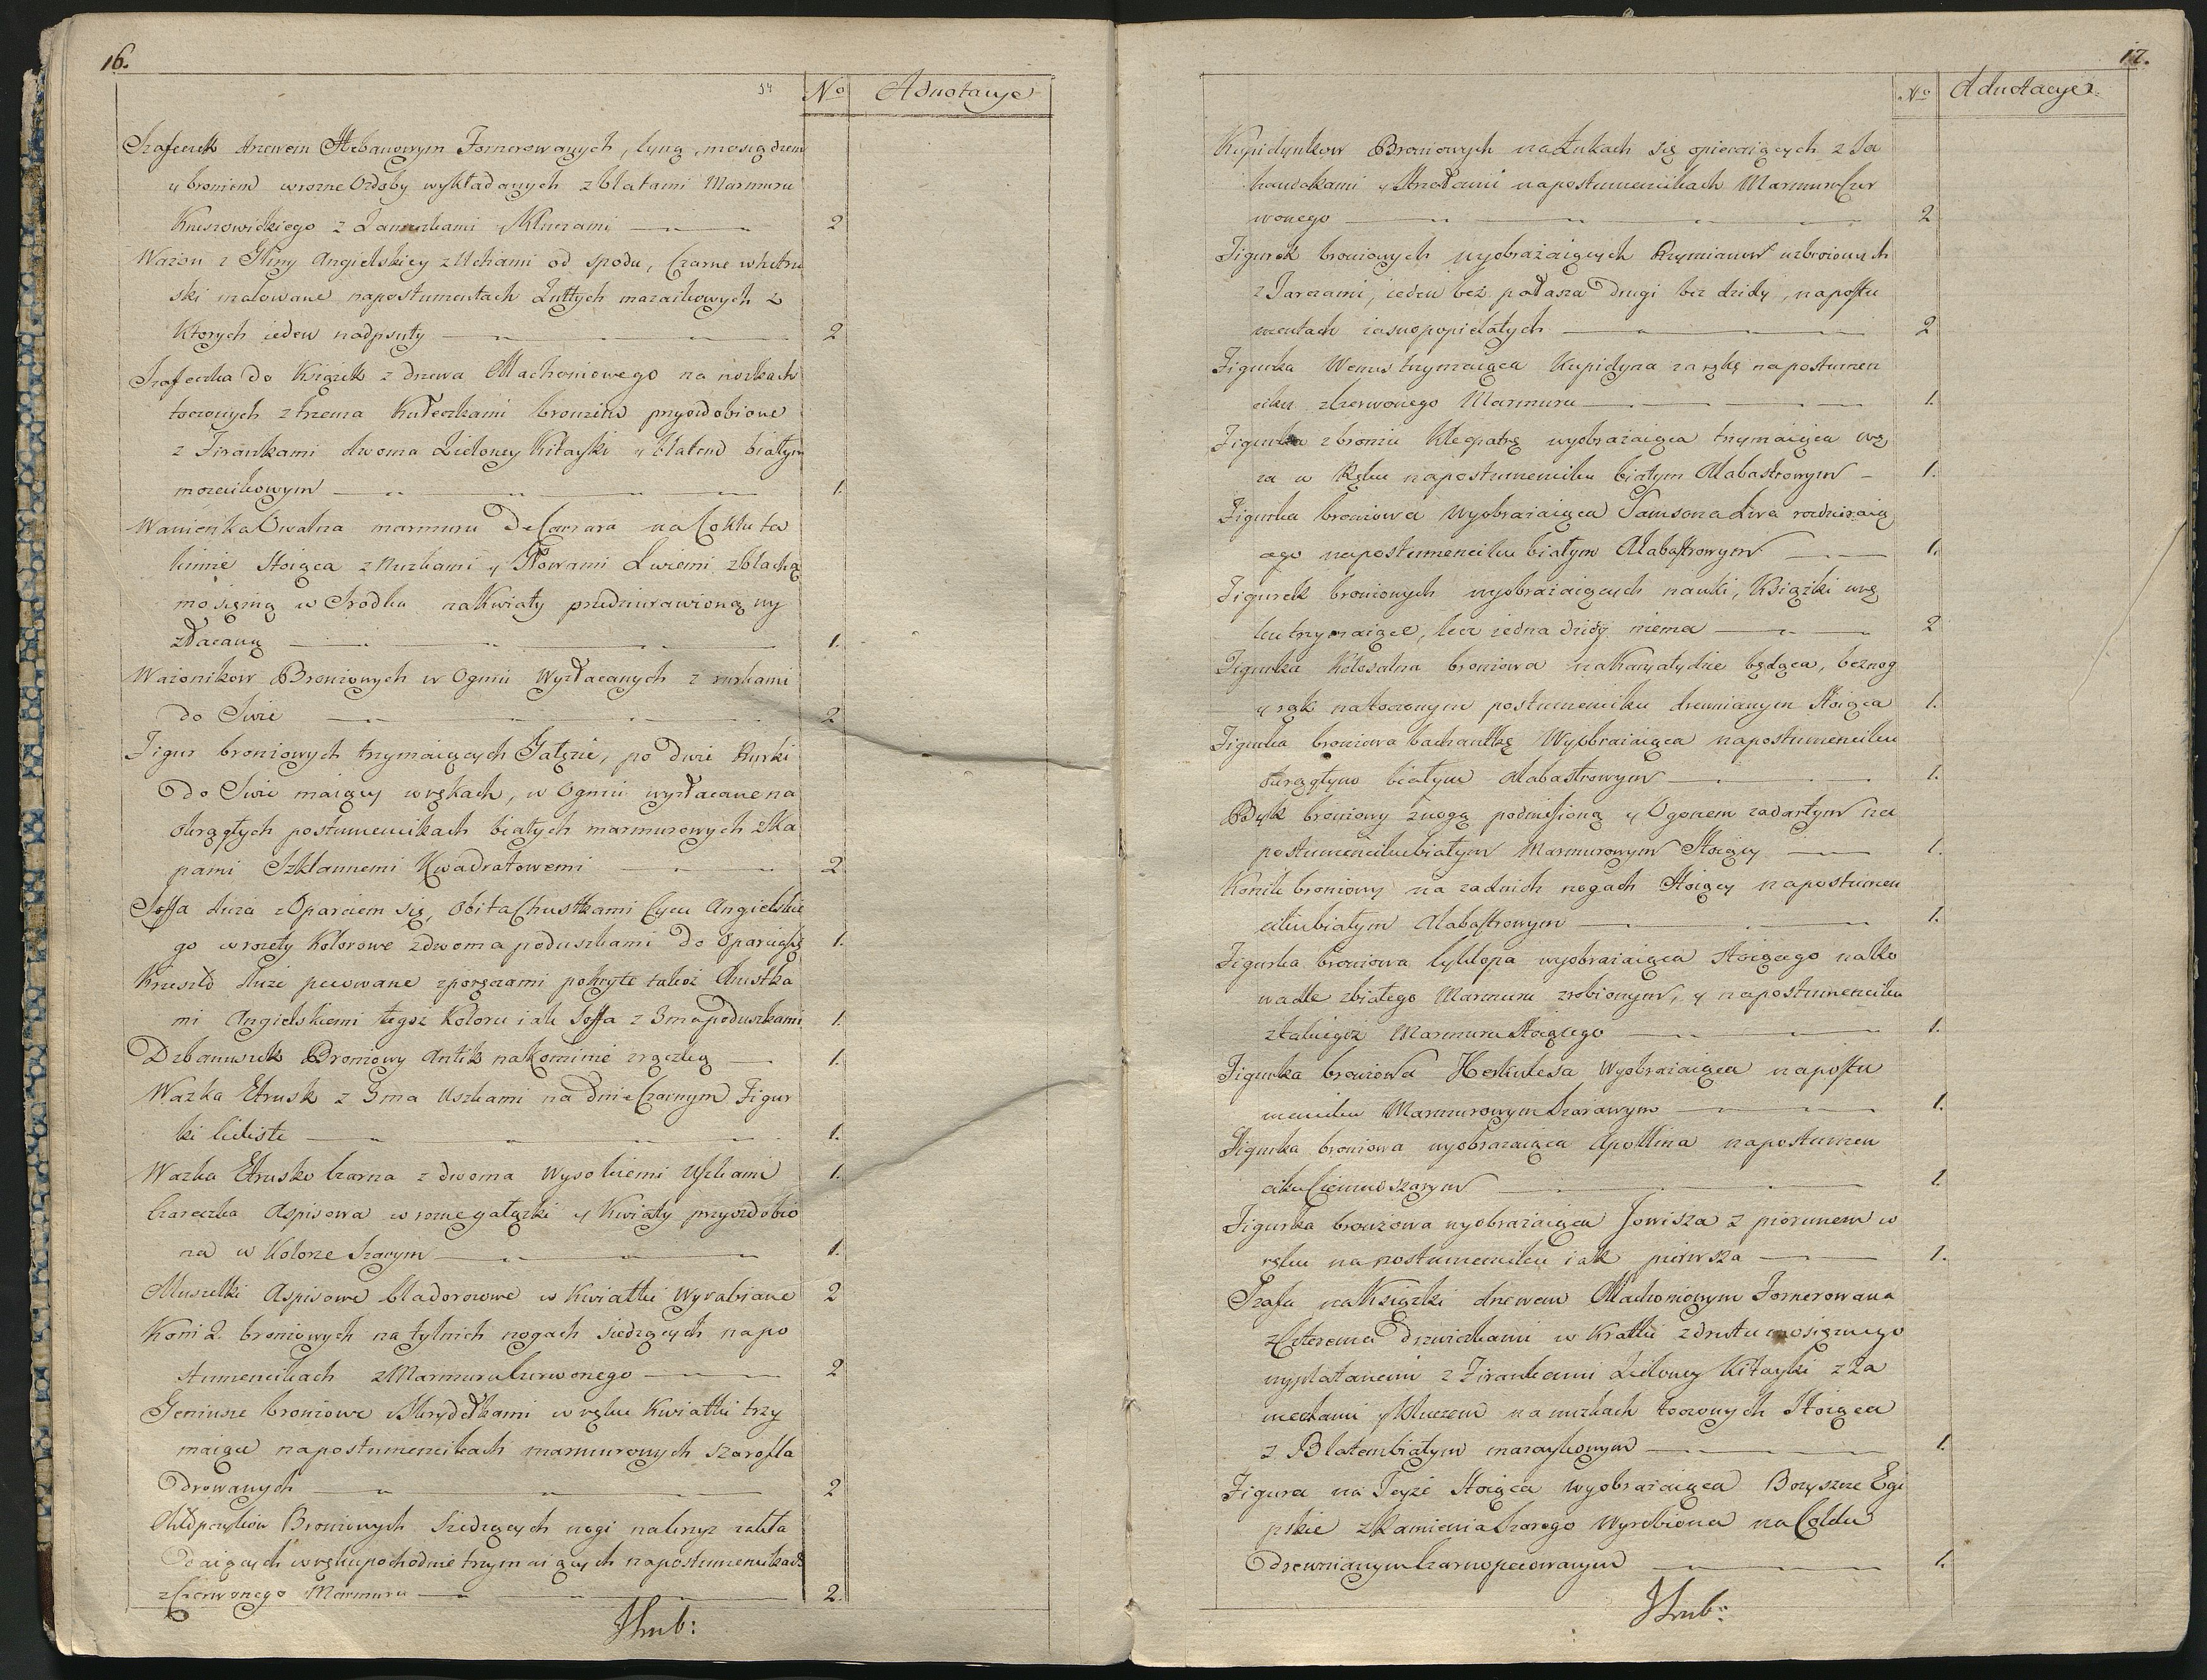 16.
54
No Adnotacye
Szafeczek drzewem Hebanowym Fornerowanych, cyną, mosiądzem
y bronzem w rozne Ozdoby wykładanych z blatami Marmuru
Kruszowickiego z Zameczkami y Kluczami 2
Wazon z Gliny Angielskiey z Uchami od spodu, Czarne w hetru
ski malowane na postumentach Żułtych mazaikowych z
Ktorych ieden nadpsuty 2
Szafeczka do Książek z drzewa Machoniowego na nożkach
toczonych z trzema Kułeczkami bronzem przyozdobione
z Firankami dwoma Zieloney Kitayki y blatem białym
mozaikowym 1.
Wanienka Owalna marmuru De Carrara na Cokłu ta
kimże Stoiąca z Nuzkami y Głowami Lwiemi z blachą
mosięzną w Srodku na Kwiaty przedziurawioną wy
złacaną 1.
Wazonikow Bronzowych w Ogniu Wyzłacanych z rurkami
do Swic 2
Figur bronzowych trzymaiących Gałęzie, po dwie Rurki
do Swic maiący w rękach, w Ogniu wyzłacane na
okrągłych postumencikach białych marmurowych z Ka
pami Szklannemi Kwadratowemi 2
Soffa duza z Oparciem się, Obita Chustkami Cycu Angielskie
go w rozety Kolorowe z dwoma poduszkami do Oparcia się 1.
Krzesło duże pecowane z poręczami pokryte takoż Chustka
mi Angielskiemi tegoż Koloru iak Soffa z 3ma poduszkami 1.
Dzbanuszek Bronzowy Antik na kominie z rączką 1.
Wazka Etrusk z 3ma Uszkami na dnie Czarnym Figur
ki liliste 1.
Wazka Etrusko Czarna z dwoma Wysokiemi Uszkami 1.
Czareczka Aspisowa w rozne gałązki y Kwiaty przyozdobio
na w Kolorze Szarym 1.
Muszelki Aspisowe bladorozowe w Kwiatki Wyrabiane 2
Koni 2 bronzowych na tylnich nogach siedzących na po
stumencikach z Marmuru Czerwonego 2
Geniusze bronzowe z Skrzydełkami w ręku Kwiatki trzy
maiące na postumencikach marmurowych szarofla
drowanych 2
Chłopczykow Bronzowych siedzących nogi na krzyz zakła
daiących w ręku pochodnie trzymaiących na postumencikach
z Czerwonego Marmuru 2.
Hrub:
17.
No Adnotacye
Kupidynkow Bronzowych na Łukach się opieraiących z Sa
haydakami y Strzałami na postumencikach Marmuru Czer
wonego 2
Figurek bronzowych wyobrażaiących Rzymianow uzbroionych
z Tarczami, ieden bez pałasza drugi bez dzidy, na postu
mentach iasnopopielatych 2
Figurka Wenus trzymaiąca Kupidyna za rękę na postumen
ciku z Czerwonego Marmuru 1.
Figurka z bronzu Kleopatrę wyobrażaiąca trzymaiąca wę
za w Ręku na postumenciku białym Alabastrowym 1.
Figurka bronzowa Wyobrażaiąca Samsona Lwa rozdzieraią
cego na postumenciku białym Alabastrowym 1.
Figurek bronzowych wyobrażaiących nauki, Książki w rę
ku trzymaiące, lecz iedna dzidy niema 2
Figurka Kolosalna bronzowa na Karyatydzie będąca, bez nog
y rąk na toczonym postumenciku drewnianym Stoiąca 1.
Figurka bronzowa bachantkę Wyobrażaiąca na postumenciku
okrągłym białym Alabastrowym 1.
Byk bronzowy z nogą podniesioną y Ogonem zadartym na
postumenciku białym Marmurowym Stoiący 1.
Konik bronzowy na zadnich nogach Stoiący na postumen
ciku białym Alabastrowym 1.
Figurka bronzowa Cyklopa wyobrażaiąca stoiącego na Ko
wadle z białego Marmuru zrobionym, y na postumenciku
z takiegoz Marmuru Stoiącego 1.
Figurka bronzowa Herkulesa Wyobrażaiąca na postu
menciku Marmurowym Szarawym 1.
Figurka bronzowa wyobrażaiąca Apollina na postumen
ciku Ciemnoszarym 1
Figurka bronzowa wyobrażaiąca Jowisza z piorunem w
ręku na postumenciku iak pierwsza 1.
Szafa na Książki drzewem Machoniowym Fornerowana
z Czterema Drzwiczkami w Kratki z drutu mosięznego
wyplatanemi z Firankami Zieloney Kitayki z Za
meczkami y Kluczem na nuzkach toczonych Stoiąca
z Blatem białym mazaykowym 1.
Figura na Teyże Stoiąca wyobrażaiąca Bożyszcze Egi
pskie z Kamienia Szarego Wyrobiona na Cokłu
drewnianym Czarno pecowanym 1.
Hrub: